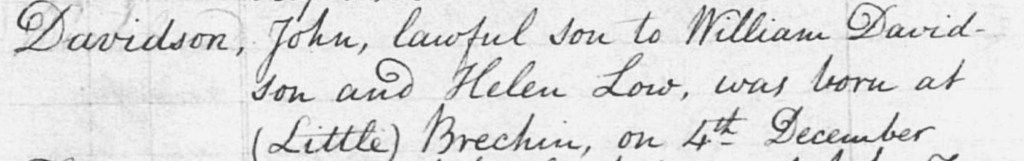 Davidson, John, lawful son to William David-
son and Helen Low, was born at
(Little) Brechin, on 4th December